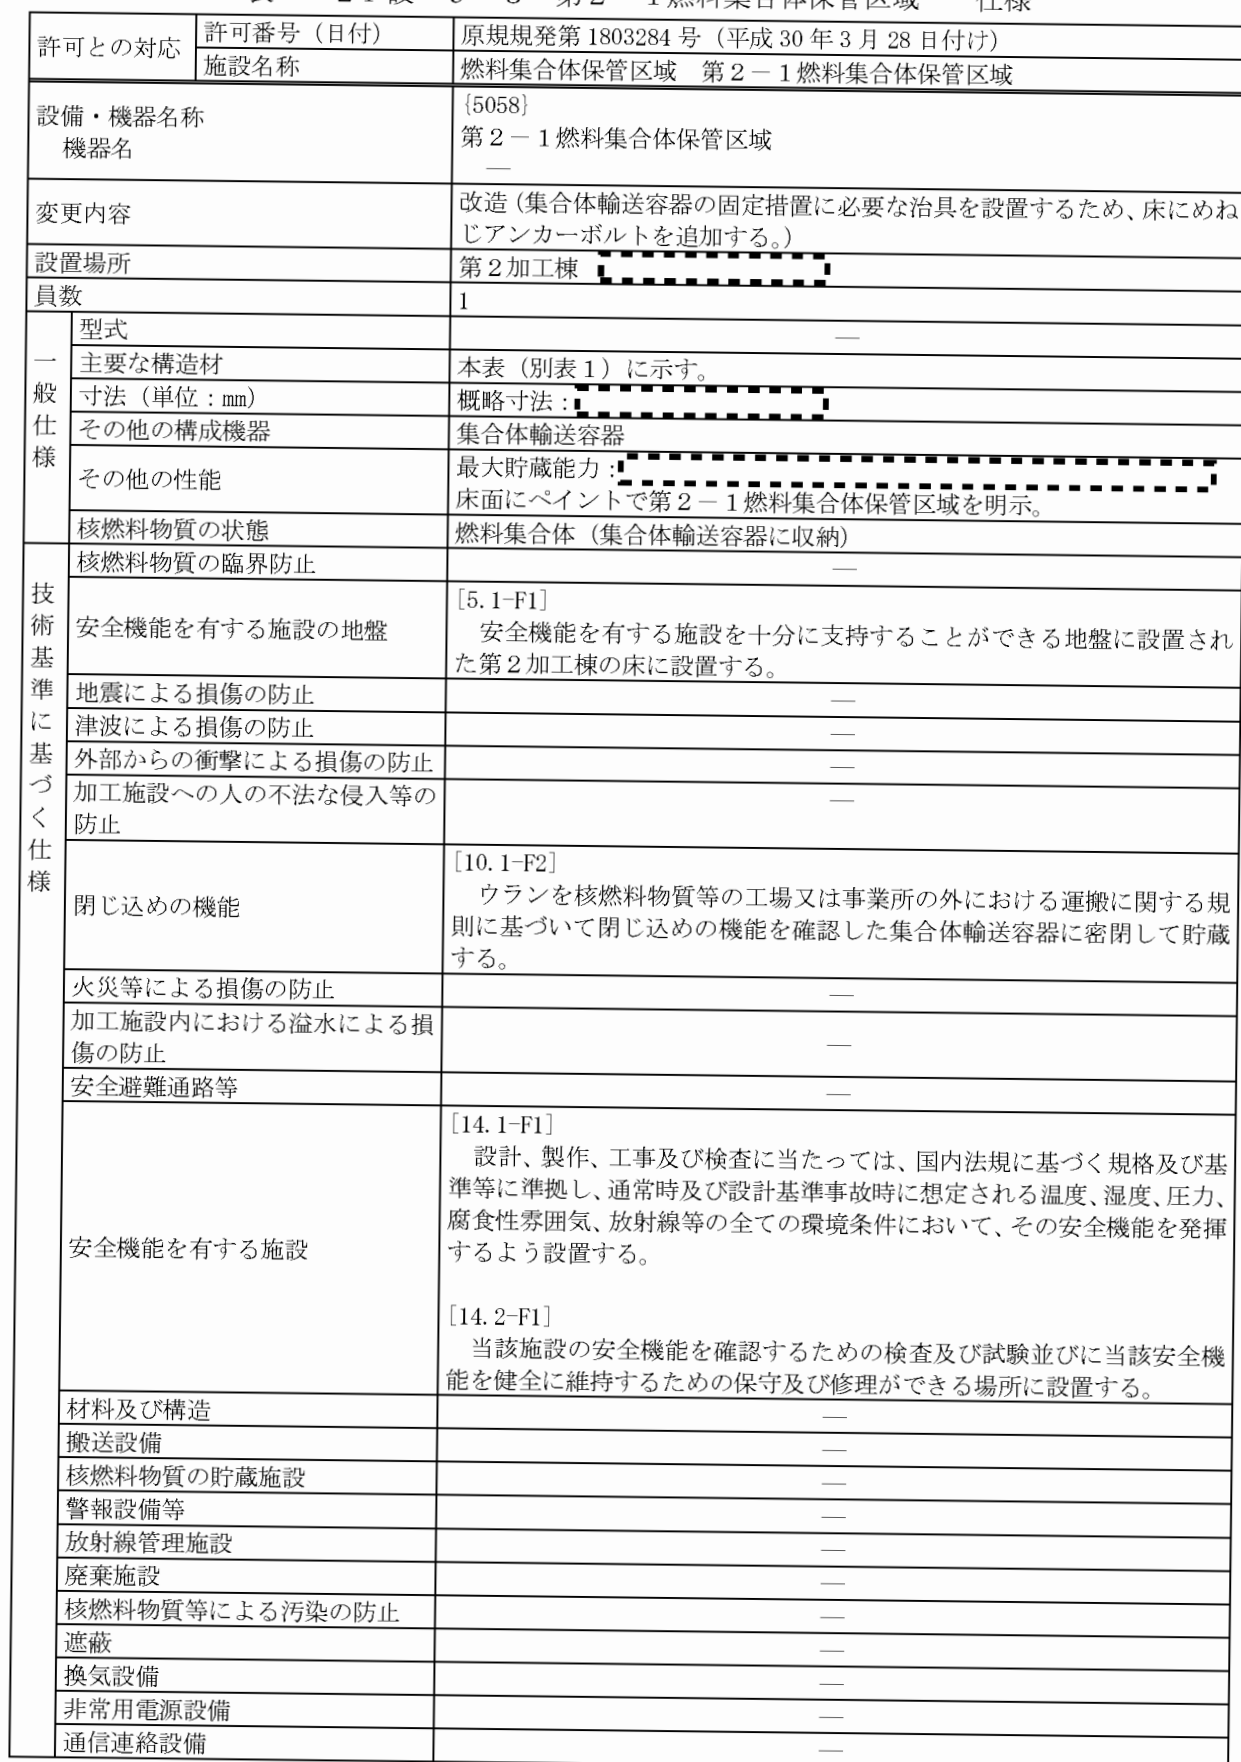 許可との対応 許可番号（日付） 原規規発第 1803284 号（平成 30 年 3 月 28 日付け）
施設名称 燃料集合体保管区域　第２－１燃料集合体保管区域
設備・機器名称
機器名
{5058}
第２－１燃料集合体保管区域
―
変更内容
改造（集合体輸送容器の固定措置に必要な治具を設置するため、床にめね
じアンカーボルトを追加する。）
設置場所 第２加工棟
員数 1
一般仕様
型式 ―
主要な構造材 本表（別表１）に示す。
寸法（単位：mm） 概略寸法：
その他の構成機器 集合体輸送容器
その他の性能
最大貯蔵能力：
床面にペイントで第２－１燃料集合体保管区域を明示。
核燃料物質の状態 燃料集合体（集合体輸送容器に収納）
技術基準に基づく仕様
核燃料物質の臨界防止 ―
安全機能を有する施設の地盤
[5.1-F1]
安全機能を有する施設を十分に支持することができる地盤に設置され
た第２加工棟の床に設置する。
地震による損傷の防止 ―
津波による損傷の防止 ―
外部からの衝撃による損傷の防止 ―
加工施設への人の不法な侵入等の
防止
―
閉じ込めの機能
[10.1-F2]
ウランを核燃料物質等の工場又は事業所の外における運搬に関する規
則に基づいて閉じ込めの機能を確認した集合体輸送容器に密閉して貯蔵
する。
火災等による損傷の防止 ―
加工施設内における溢水による損
傷の防止
―
安全避難通路等 ―
安全機能を有する施設
[14.1-F1]
設計、製作、工事及び検査に当たっては、国内法規に基づく規格及び基
準等に準拠し、通常時及び設計基準事故時に想定される温度、湿度、圧力、
腐食性雰囲気、放射線等の全ての環境条件において、その安全機能を発揮
するよう設置する。
[14.2-F1]
当該施設の安全機能を確認するための検査及び試験並びに当該安全機
能を健全に維持するための保守及び修理ができる場所に設置する。
材料及び構造 ―
搬送設備 ―
核燃料物質の貯蔵施設 ―
警報設備等 ―
放射線管理施設 ―
廃棄施設 ―
核燃料物質等による汚染の防止 ―
遮蔽 ―
換気設備 ―
非常用電源設備 ―
通信連絡設備 ―